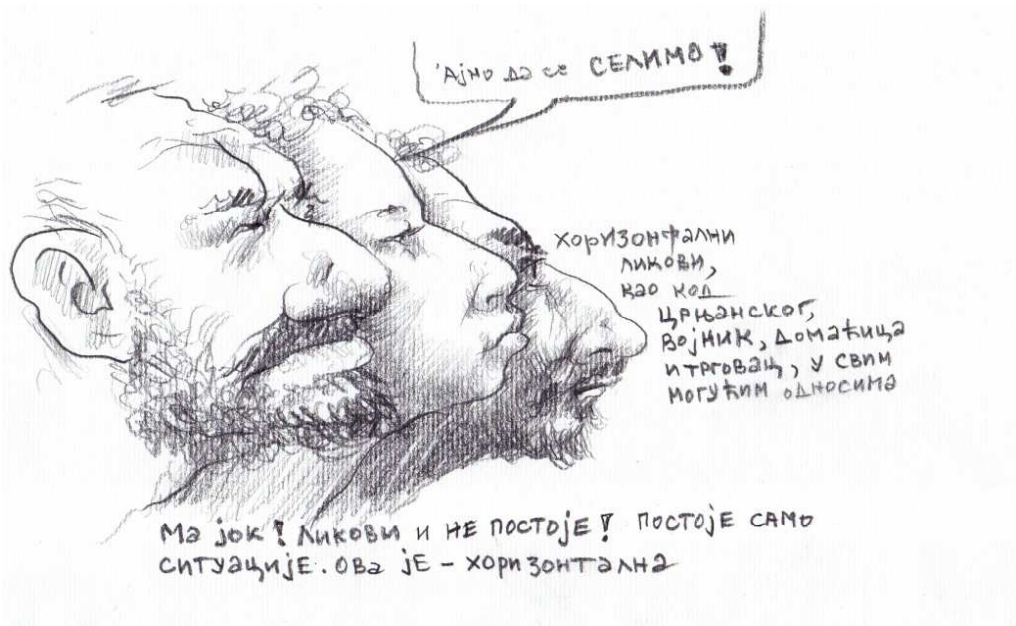 'Ајмо да се СЕЛИМО!
хоризонтални
ликови,
као код
Црњанског,
војник, домаћица
и трговац, у свим
могућим односима
Ма јок! Ликови и не постоје! Постоје само
ситуације. Ова је - хоризонтална